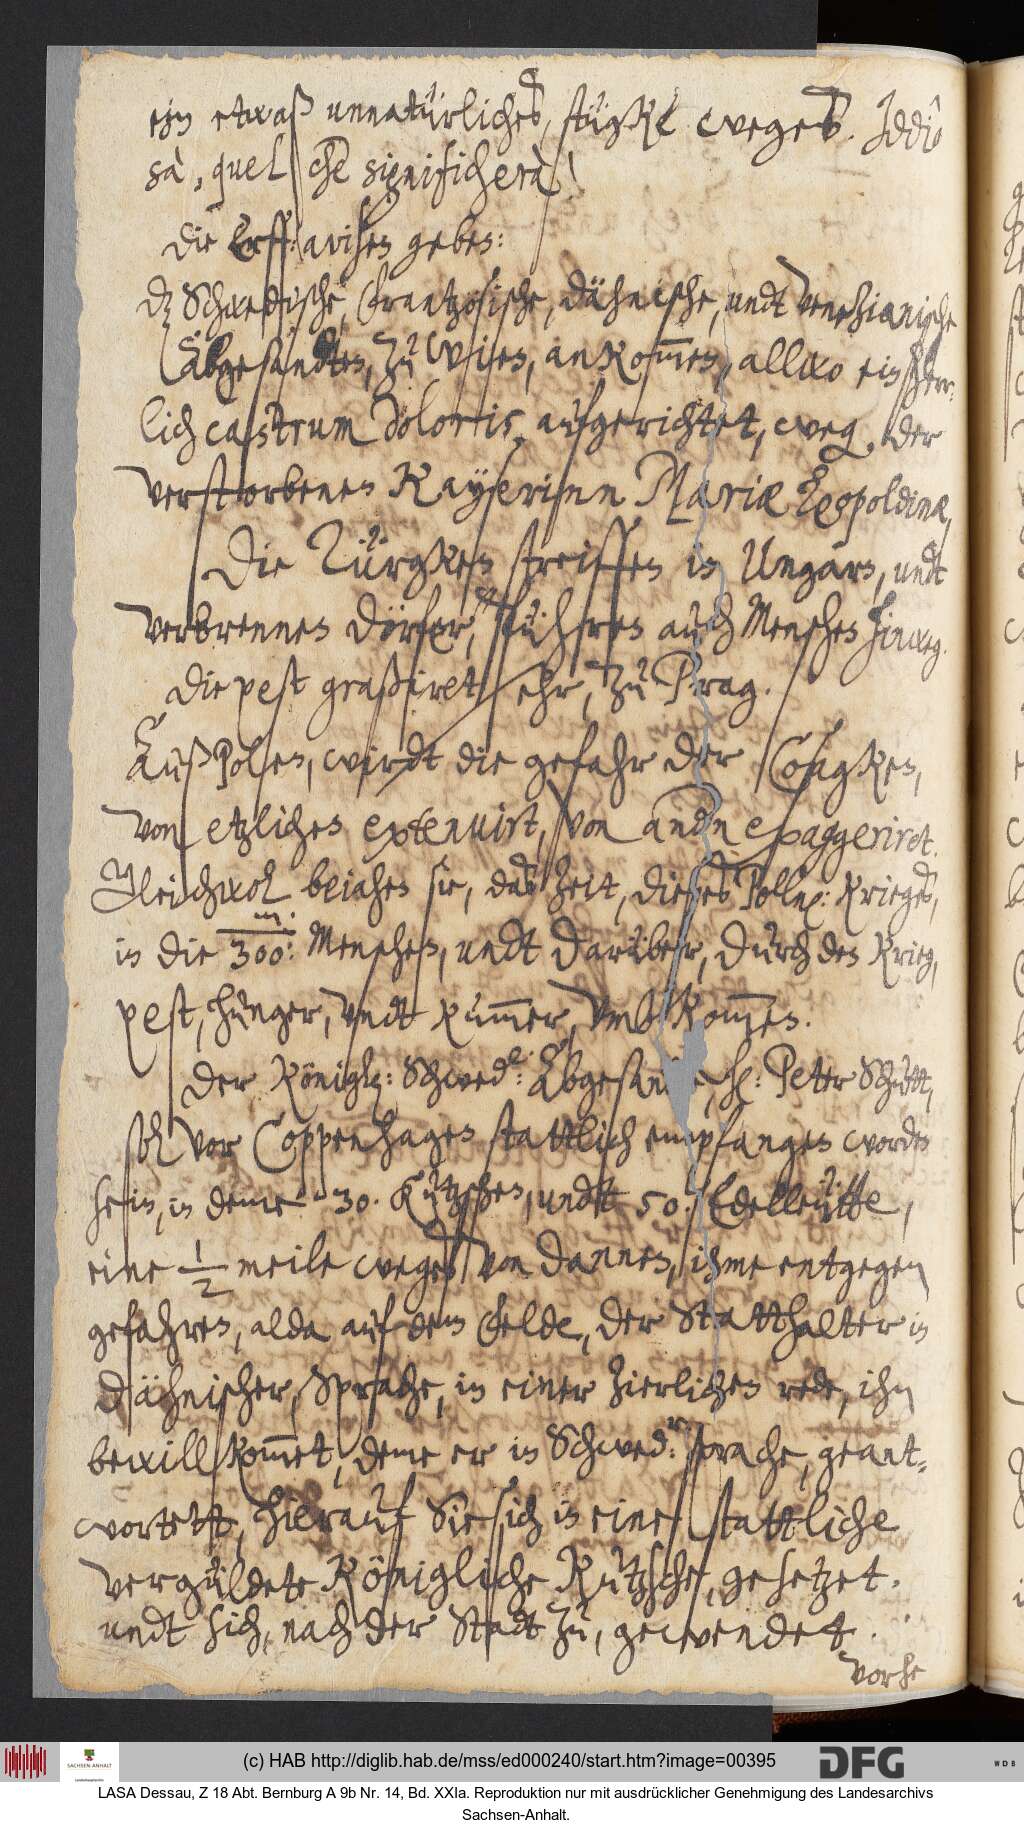 ein etwaß unnatürliches, stügke weges. Iddio
sà, quel che significherà!
Die Erff: avisen geben:
dz Schwedische, Frantzösische, dähnische, undt Venezianische
Abgesandten, zu Wien, ankom̅en, allwo ein
lich castrum doloris, aufgerichtet, weg. der
verstorbenen Kayserinn Mariæ Leopoldinæ,
Die Türgken streiffen in Ungarn, undt
verbrennen dörfer, führen auch Menschen hinweg.
Die pest graßiret sehr, zu Prag.
Auß Polen, wirdt die gefahr der Cosagken,
von etzlichen extenuirt, von andn exaggeriret.
Gleichwol bejahen sie, das zeit, dieses Polln: Krieges,
in die 300: m: Menschen, undt darüber, durch den Krieg,
pest, hunger, undt kum̅er, umbkom̅en.
Der Königl: Schwed: Abgesandte, h: Peter Schutt,
sol vor Coppenhagen stattlich empfangen worden
sein, in deme 30. Kutzschen, undt 50. Edelleütte,
eine 1/2 meile weges von dannen, ihme entgegen
gefahren, alda auf dem Felde, der Statthalter in
Dähnischer, Sprache, in einer zierlichen rede, ihn
bewillkom̅et, deme er in Schwed:r sprache, geant-
wortett, hierauf Sie sich in eine stattliche
vergüldete Königliche Kutzsche, gesetzet.
undt sich, nach der Stadt zu, gewendet.
vorhe
(c) HAB http://diglib.hab.de/mss/ed000240/start.htm?image=00395
SACHSEN-ANHALT
DFG
WDB
LASA Dessau, Z 18 Abt. Bernburg A 9b Nr. 14, Bd. XXIa. Reproduktion nur mit ausdrücklicher Genehmigung des Landesarchivs
Sachsen-Anhalt.